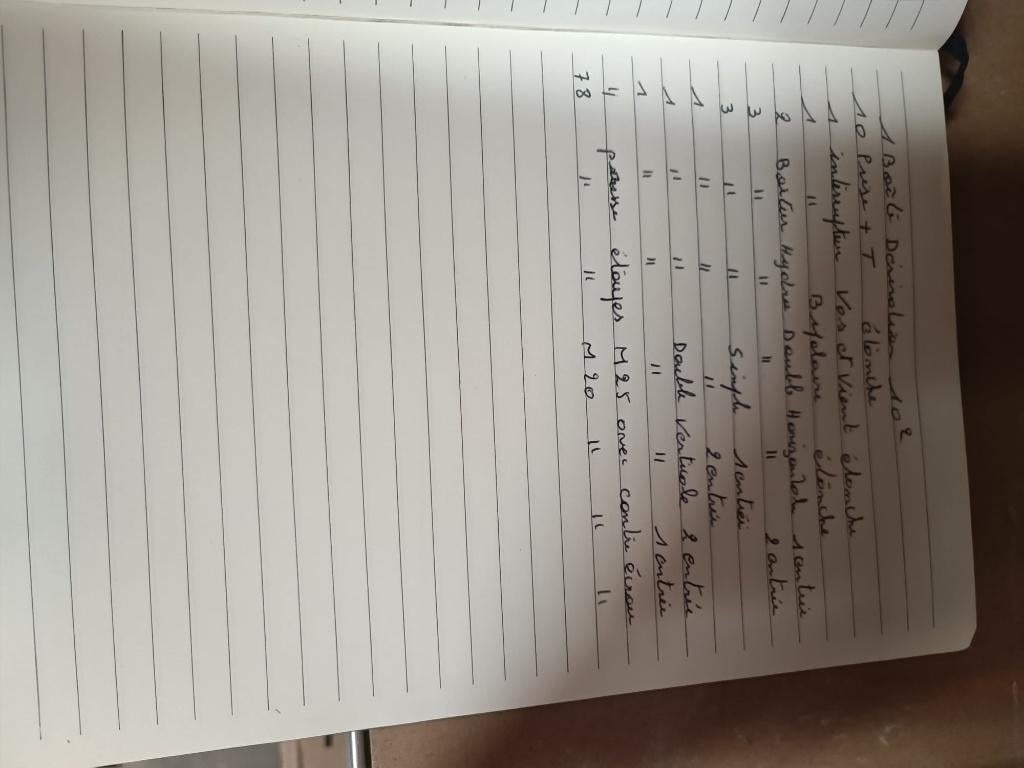 1 Boîte Dérivation 10²
10 Prise + T étanche
1 interrupteur Vas et Vient étanche
1 " Bipolaire étanche
2 Boitier Hydro Double Horizontale 1 entrée
3 " " " " 2 entrée
3 " " Simple 1 entrée
1 " " " 2 entrée
1 " " Double Verticale 2 entrée
1 " " " " 1 entrée
4 presse étoupes M25 avec contre écrou
78 " " M20 " " "